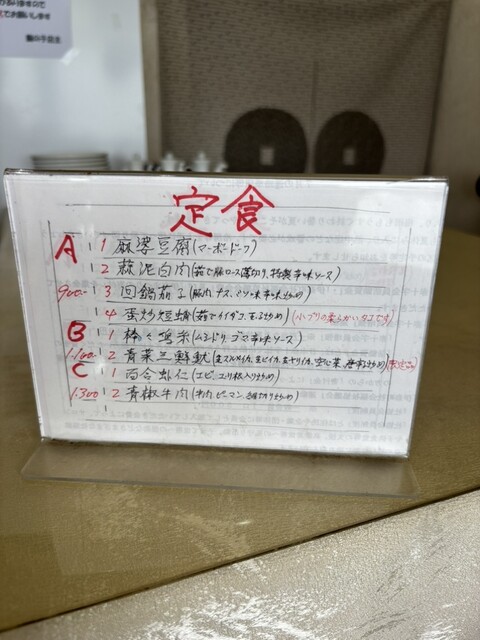 定食
A 1 麻婆豆腐(マーボードーフ)
2 蒜泥白肉(茹で豚ロース薄切り、特製辛味ソース)
900- 3 回鍋茄子(豚肉 ナス、ミソ味辛味炒め)
4 蛋炒短蛸(茹でイイダコ、玉子炒め)(小ブリの柔らかいタコです)
B 1 棒々鶏絲(ムシドリ、ゴマ辛味ソース)
1.100- 2 青菜三鮮魷(生スルメイカ、生ヒイカ、生ヤリイカ、空心菜、唐辛子炒め)限定品
C 1 百合蝦仁(エビ、ユリ根入り炒め)
1.300 2 青椒牛肉(牛肉、ピーマン、細切り炒め)